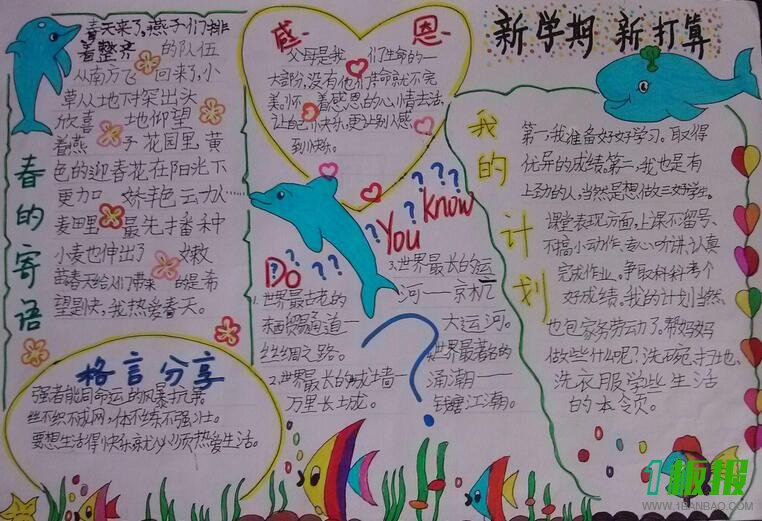 新学期 新打算
春的寄语
春天来了。燕子们排
着整齐 的队伍
从南方飞 回来了,小
草从地下探出头
欣喜 地仰望
着燕 子 花园里,黄
色的迎春花在阳光下
更加 娇丰色
麦田里 最先播种
小麦也伸出了 嫩
苗春天给们带来 的是希
望是快,我热爱春天。
感 恩
父母是我 们生命的一
大部分,没有他们生命就不完
美。怀 着感恩的心情去活,
让自己快乐,更让别人感
到快乐。
Do You Know
???
1.世界最古老的
东西贸易通道一
丝绸之路。
2.世界最长的城墙一
万里长城。
3.世界最长的运
河——京杭
大运河。
世界最著名的
涌潮——
钱塘江潮。
?
格言分享
强者能同命运的风暴抗争
丝不织不成网,体不练不强壮。
要想生活得快乐就必须热爱生活。
我的计划
第一,我准备好好学习。取得
优异的成绩。第二,我也是有
上劲的人,当然是想做三好学生。
课堂表现方面,上课不留号、
不搞小动作。专心听讲,认真
完成作业。争取科科考个
好成绩。我的计划当然
也包家务劳动了。帮妈妈
做些什么呢?洗碗、扫地、
洗衣服学些生活
的本领。
1板报
WWW.1BANBAO.COM